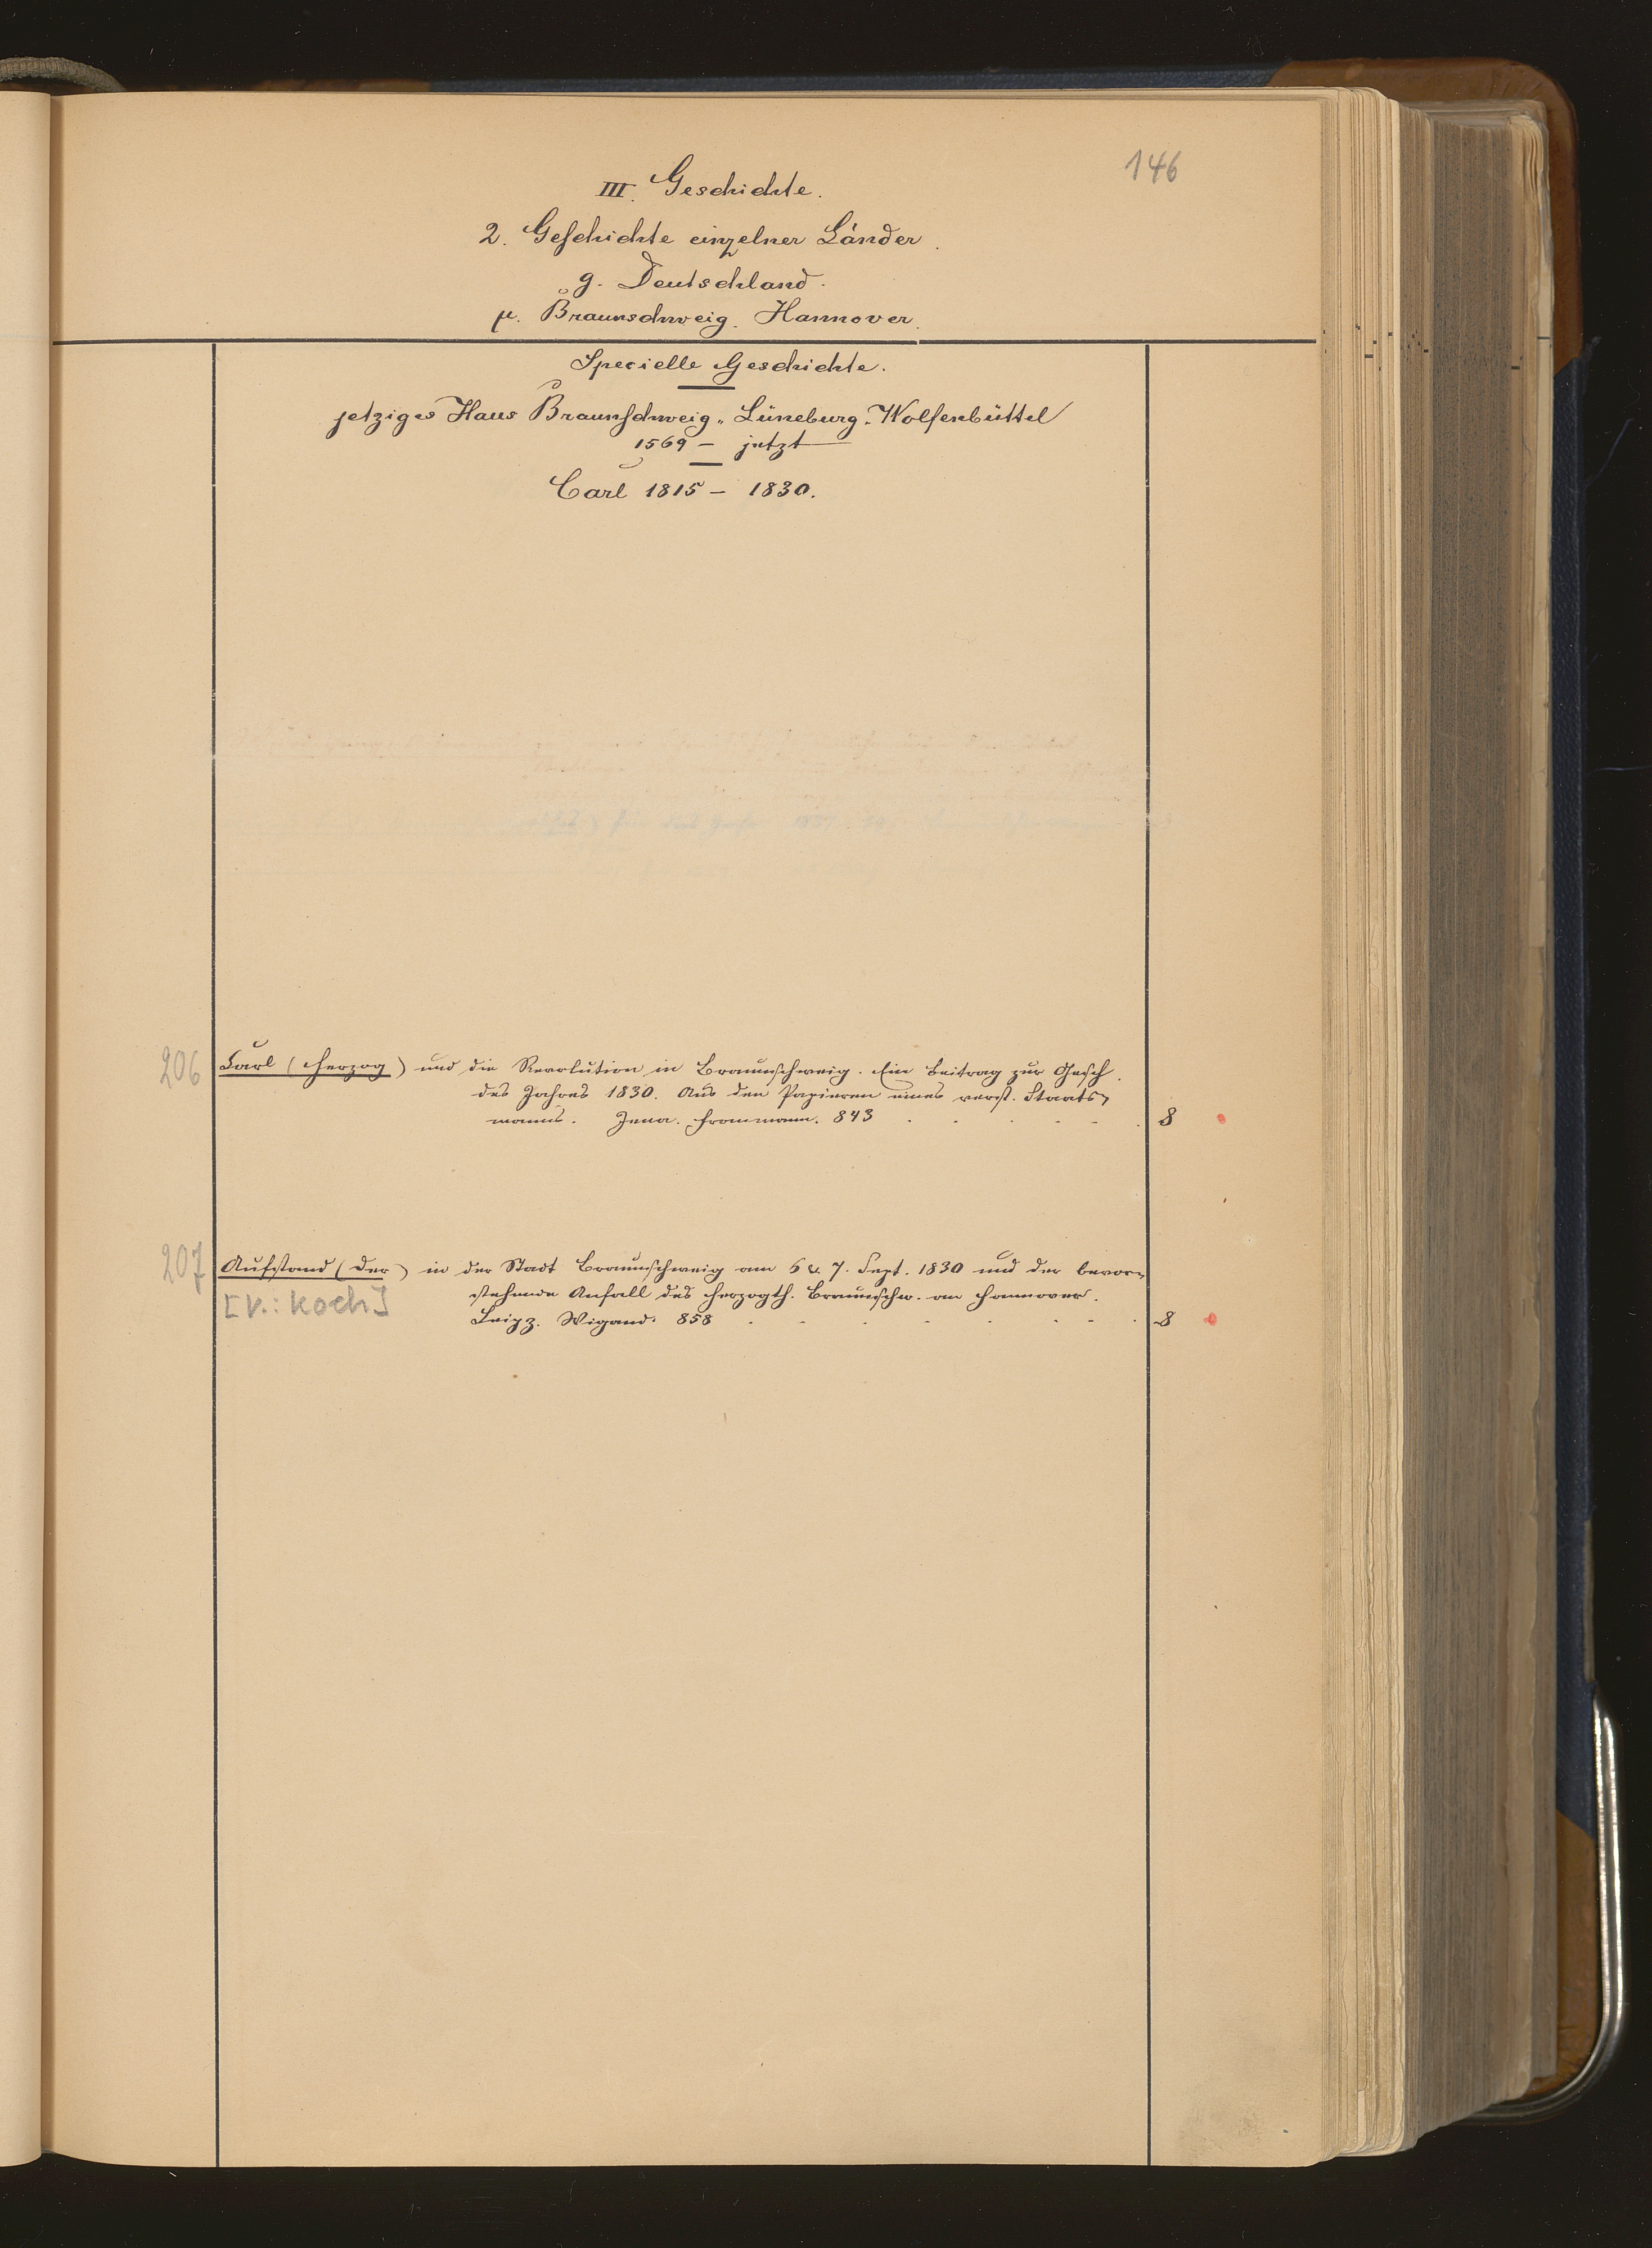 146
III. Geschichte.
2. Geschichte einzelner Länder.
g. Deutschland.
μ. Braunschweig. Hannover.
Specielle Geschichte.
jetziges Haus Braunschweig-Lüneburg-Wolfenbüttel
1569 – jetzt
Carl 1815 – 1830.
206 Carl (Herzog) und die Revolution in Braunschweig. Ein Beitrag zur Gesch.
des Jahres 1830. Aus den Papieren eines verst. Staats-
manns. Jena. Frommann. 843 . . . . . . 8
207 Aufstand (der) in der Stadt Braunschweig am 6 u. 7. Sept. 1830 und der bevor-
[V.: Koch] stehende Anfall des Herzogth. Braunschw. an Hannover.
Leipz. Wigand. 858 . . . . . . . 8